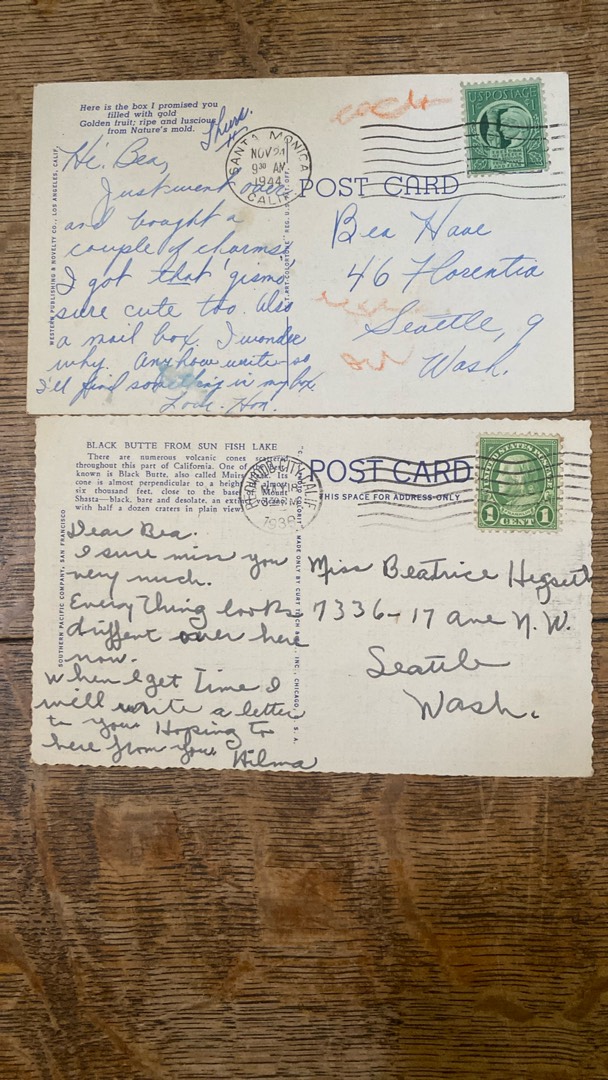 Here is the box I promised you
filled with gold
Golden fruit; ripe and luscious
from Nature's mold.
Thurs.
Hi. Bea,
Just went over
and bought a
couple of charms.
I got that 'gismo'
sure cute too. Also
a mail box. I wonder
why. Anyhow write so
I'll find something in my box.
Love. Hon.
WESTERN PUBLISHING & NOVELTY CO., LOS ANGELES, CALIF.
SANTA MONICA
NOV 21
9 30 AM
1944
CALIF.
U.S. POSTAGE
POST CARD
Bea Haae
46 Florentia
Seattle, 9
Wash.
BLACK BUTTE FROM SUN FISH LAKE
There are numerous volcanic cones
throughout this part of California. One of
known is Black Butte, also called Muir's Its
cone is almost perpendicular to a height
six thousand feet. close to the base of Mount
Shasta—black, bare and desolate, an
with half a dozen craters in plain view.
SOUTHERN PACIFIC COMPANY, SAN FRANCISCO
Dear Bea.
I sure miss you
very much.
Everything looks
diffent over here
now.
When I get Time I
will write a letter
to you. Hoping to
here from you Hilma
MADE ONLY BY CURT TEICH INC., CHICAGO, U.S.A.
CITY, CALIF
1938
POST CARD
THIS SPACE FOR ADDRESS ONLY
UNITED STATES POSTAGE
1 1
CENT
Miss Beatrice Hegseth
7336-17 ave N.W.
Seattle
Wash.